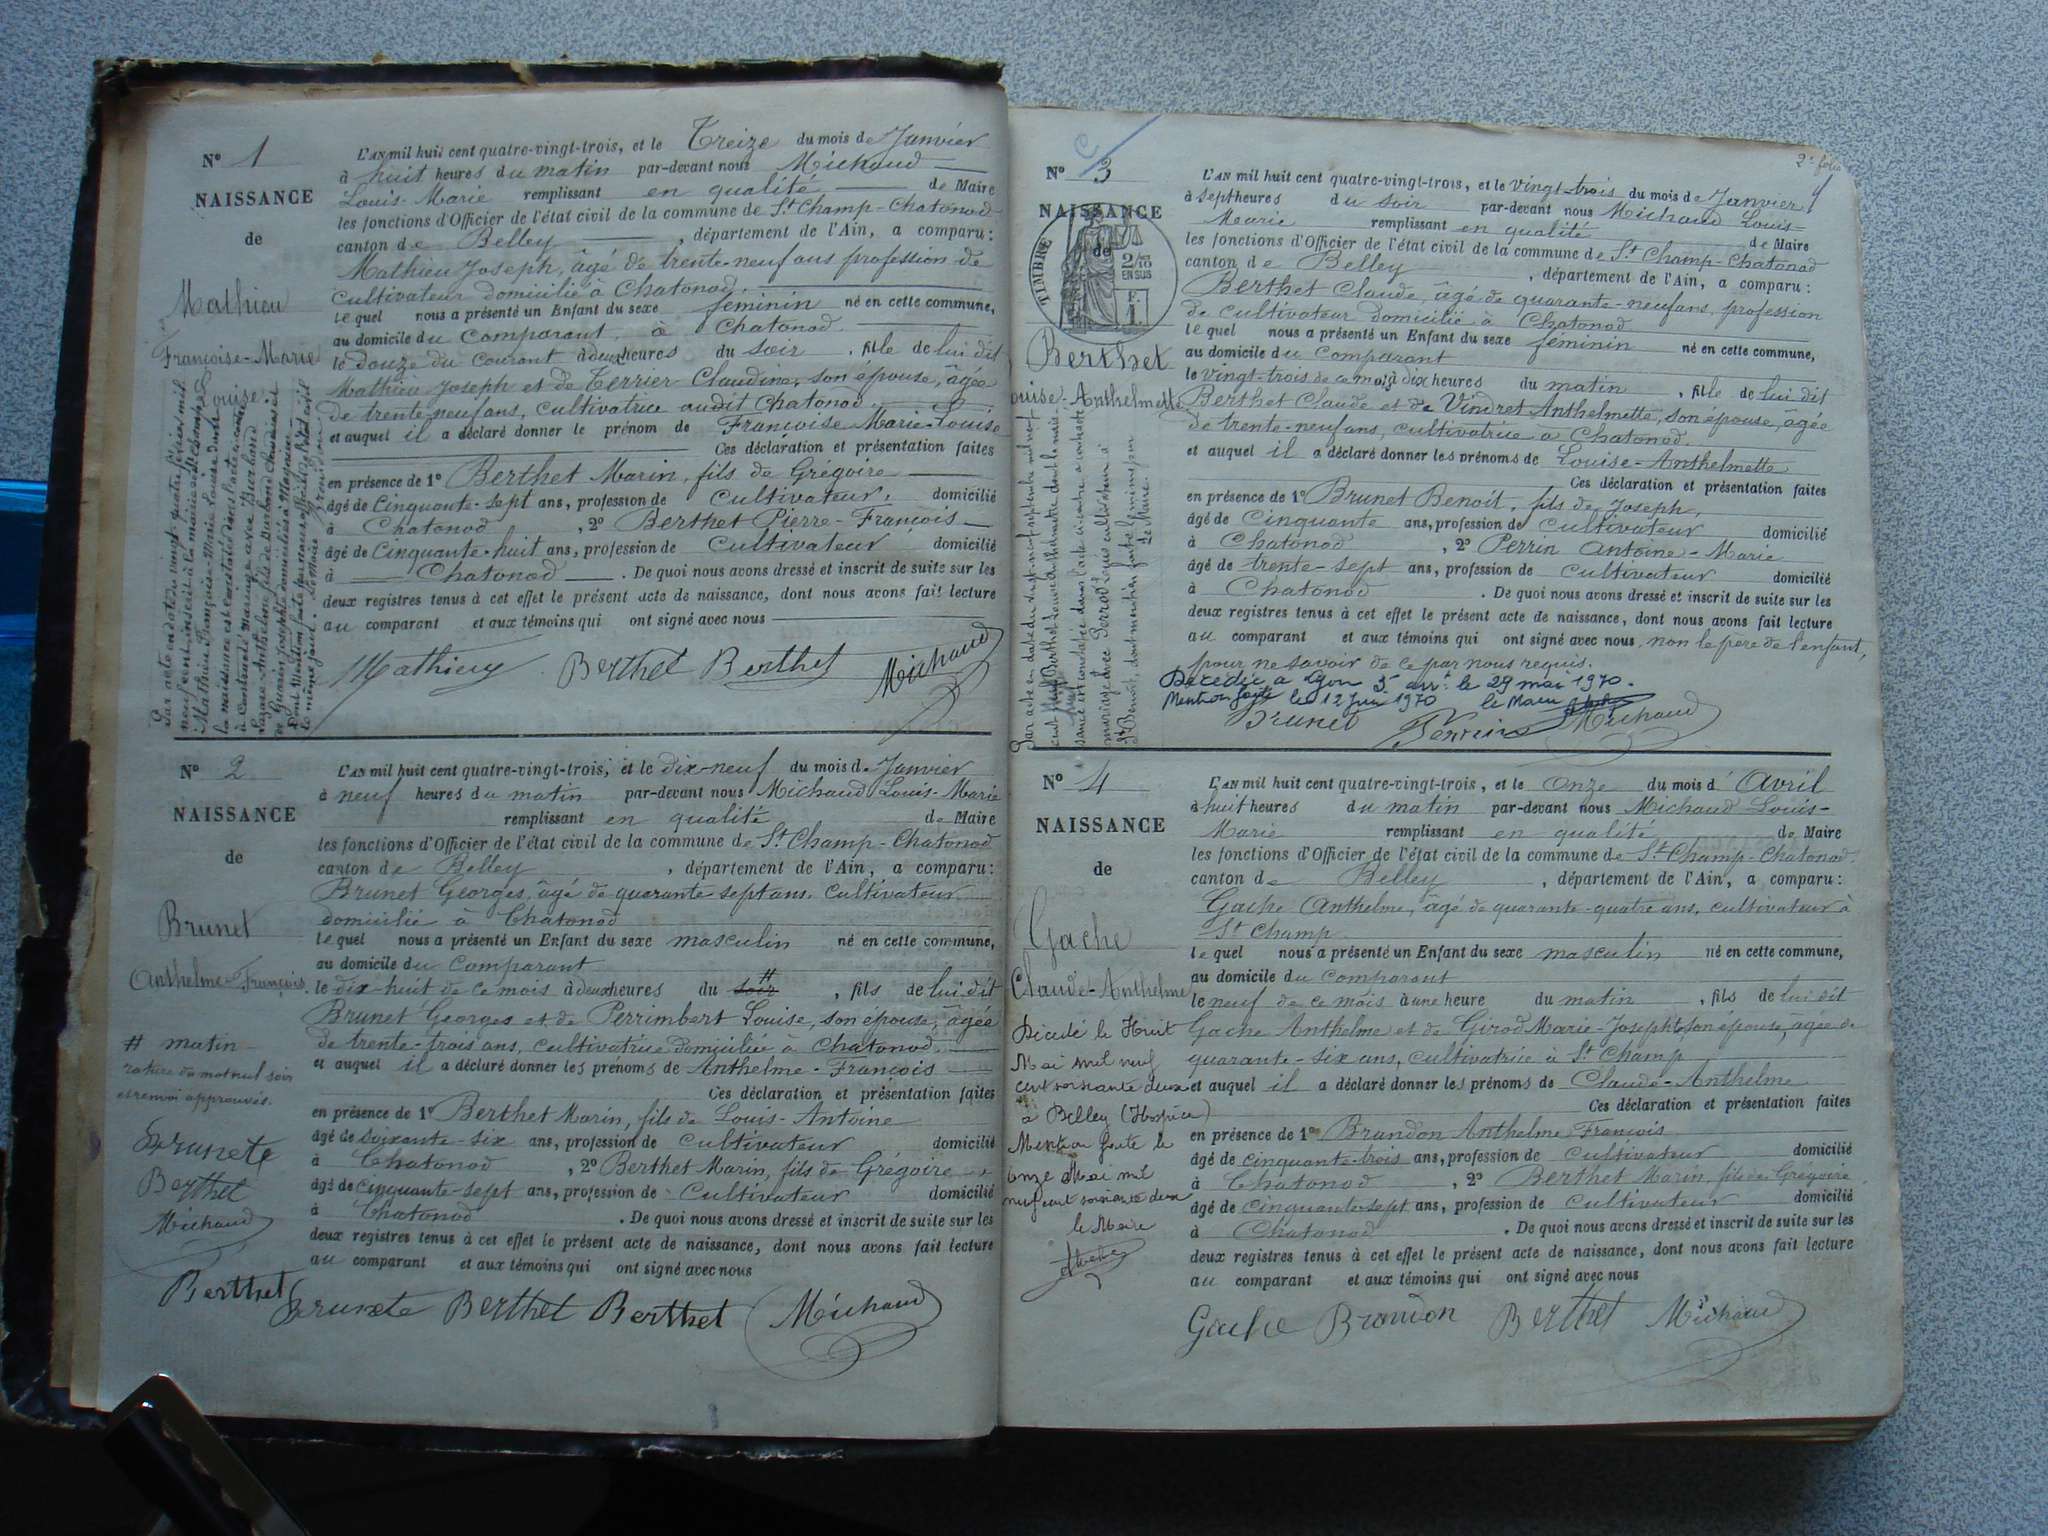 N° 1
NAISSANCE
de
Mathieu
Françoise-Marie
Louise
L'AN mil huit cent quatre-vingt-trois, et le Treize du mois de Janvier
à huit heures du matin par-devant nous Michaud
Louis-Marie remplissant en qualité de Maire
les fonctions d'Officier de l'état civil de la commune de St Champ-Chatonod
canton de Belley, département de l'Ain, a comparu:
Mathieu Joseph, âgé de trente-neuf ans profession de
cultivateur domicilié à Chatonod.
lequel nous a présenté un Enfant du sexe feminin né en cette commune,
au domicile du comparant, à Chatonod
le douze du courant à deux heures du soir, fille de lui dit
Mathieu Joseph et de Terrier Claudine, son épouse, âgée
de trente-neuf ans, cultivatrice audit Chatonod.
et auquel il a déclaré donner le prénom de Françoise Marie-Louise
Ces déclaration et présentation faites
en présence de 1° Berthet Marin, fils de Grégoire
âgé de cinquante-sept ans, profession de cultivateur, domicilié
à Chatonod, 2° Berthet Pierre-François
âgé de cinquante-huit ans, profession de cultivateur domicilié
à Chatonod. De quoi nous avons dressé et inscrit de suite sur les
deux registres tenus à cet effet le présent acte de naissance, dont nous avons fait lecture
au comparant et aux témoins qui ont signé avec nous
Mathieu Berthet Berthet Michaud
N° 2
NAISSANCE
de
Brunet
Anthelme-François.
# matin
rature du mot nul soir
et renvoi approuvés.
Brunete
Berthet
Michaud
Berthet
L'AN mil huit cent quatre-vingt-trois, et le dix-neuf du mois de Janvier
à neuf heures du matin par-devant nous Michaud Louis-Marie
remplissant en qualité de Maire
les fonctions d'Officier de l'état civil de la commune de St Champ-Chatonod
canton de Belley, département de l'Ain, a comparu:
Brunet Georges, âgé de quarante sept ans, cultivateur
domicilié à Chatonod
lequel nous a présenté un Enfant du sexe masculin né en cette commune,
au domicile du comparant
le dix-huit de ce mois à deux heures du soir #, fils de lui dit
Brunet Georges et de Perrimbert Louise, son épouse, âgée
de trente-trois ans, cultivatrice domiciliée à Chatonod.
et auquel il a déclaré donner les prénoms de Anthelme-François
Ces déclaration et présentation faites
en présence de 1° Berthet Marin, fils de Louis-Antoine
âgé de soixante-six ans, profession de cultivateur domicilié
à Chatonod, 2° Berthet Marin, fils de Grégoire
âgé de cinquante-sept ans, profession de cultivateur domicilié
à Chatonod. De quoi nous avons dressé et inscrit de suite sur les
deux registres tenus à cet effet le présent acte de naissance, dont nous avons fait lecture
au comparant et aux témoins qui ont signé avec nous
Brunete Berthet Berthet Michaud
2e folio
N° 3
NAISSANCE
de
TIMBRE
2/10
EN SUS
F.
1.
Berthet
Louise-Anthelmette
L'AN mil huit cent quatre-vingt-trois, et le vingt-trois du mois de Janvier
à sept heures du soir par-devant nous Michaud Louis-
Marie remplissant en qualité de Maire
les fonctions d'Officier de l'état civil de la commune de St Champ-Chatonod
canton de Belley, département de l'Ain, a comparu:
Berthet Claude, âgé de quarante-neuf ans, profession
de cultivateur domicilié à Chatonod
lequel nous a présenté un Enfant du sexe feminin né en cette commune,
au domicile du comparant
le vingt-trois de ce mois à dix heures du matin, fille de lui dit
Berthet Claude et de Vindret Anthelmette, son épouse, âgée
de trente-neuf ans, cultivatrice à Chatonod.
et auquel il a déclaré donner les prénoms de Louise-Anthelmette
Ces déclaration et présentation faites
en présence de 1° Brunet Benoît, fils de Joseph,
âgé de cinquante ans, profession de cultivateur domicilié
à Chatonod, 2° Perrin Antoine-Marie
âgé de trente-sept ans, profession de cultivateur domicilié
à Chatonod. De quoi nous avons dressé et inscrit de suite sur les
deux registres tenus à cet effet le présent acte de naissance, dont nous avons fait lecture
au comparant et aux témoins qui ont signé avec nous, non le père de l'enfant,
pour ne savoir de ce par nous requis.
Décédée à Lyon 5e arrt. le 29 mai 1970.
Mention faite le 12 Juin 1970 le Maire
Brunet Perrin Michaud
N° 4
NAISSANCE
de
Gache
Claude-Anthelme
Décédé le Huit
Mai mil neuf
cent soixante deux
à Belley (Hospice)
Mention faite le
onze Mai mil
neuf cent soixante deux
le Maire
L'AN mil huit cent quatre-vingt-trois, et le onze du mois d'Avril
à huit heures du matin par-devant nous Michaud Louis-
Marie remplissant en qualité de Maire
les fonctions d'Officier de l'état civil de la commune de St Champ-Chatonod
canton de Belley, département de l'Ain, a comparu:
Gache Anthelme, âgé de quarante-quatre ans, cultivateur à
St Champ
lequel nous a présenté un Enfant du sexe masculin né en cette commune,
au domicile du comparant
le neuf de ce mois à une heure du matin, fils de lui dit
Gache Anthelme et de Girod Marie-Josephte, son épouse, âgée de
quarante-six ans, cultivatrice à St Champ
et auquel il a déclaré donner les prénoms de Claude-Anthelme
Ces déclaration et présentation faites
en présence de 1° Brandon Anthelme François
âgé de cinquante-trois ans, profession de cultivateur domicilié
à Chatonod, 2° Berthet Marin, fils de Grégoire
âgé de cinquante-sept ans, profession de cultivateur domicilié
à Chatonod. De quoi nous avons dressé et inscrit de suite sur les
deux registres tenus à cet effet le présent acte de naissance, dont nous avons fait lecture
au comparant et aux témoins qui ont signé avec nous
Gache Brandon Berthet Michaud